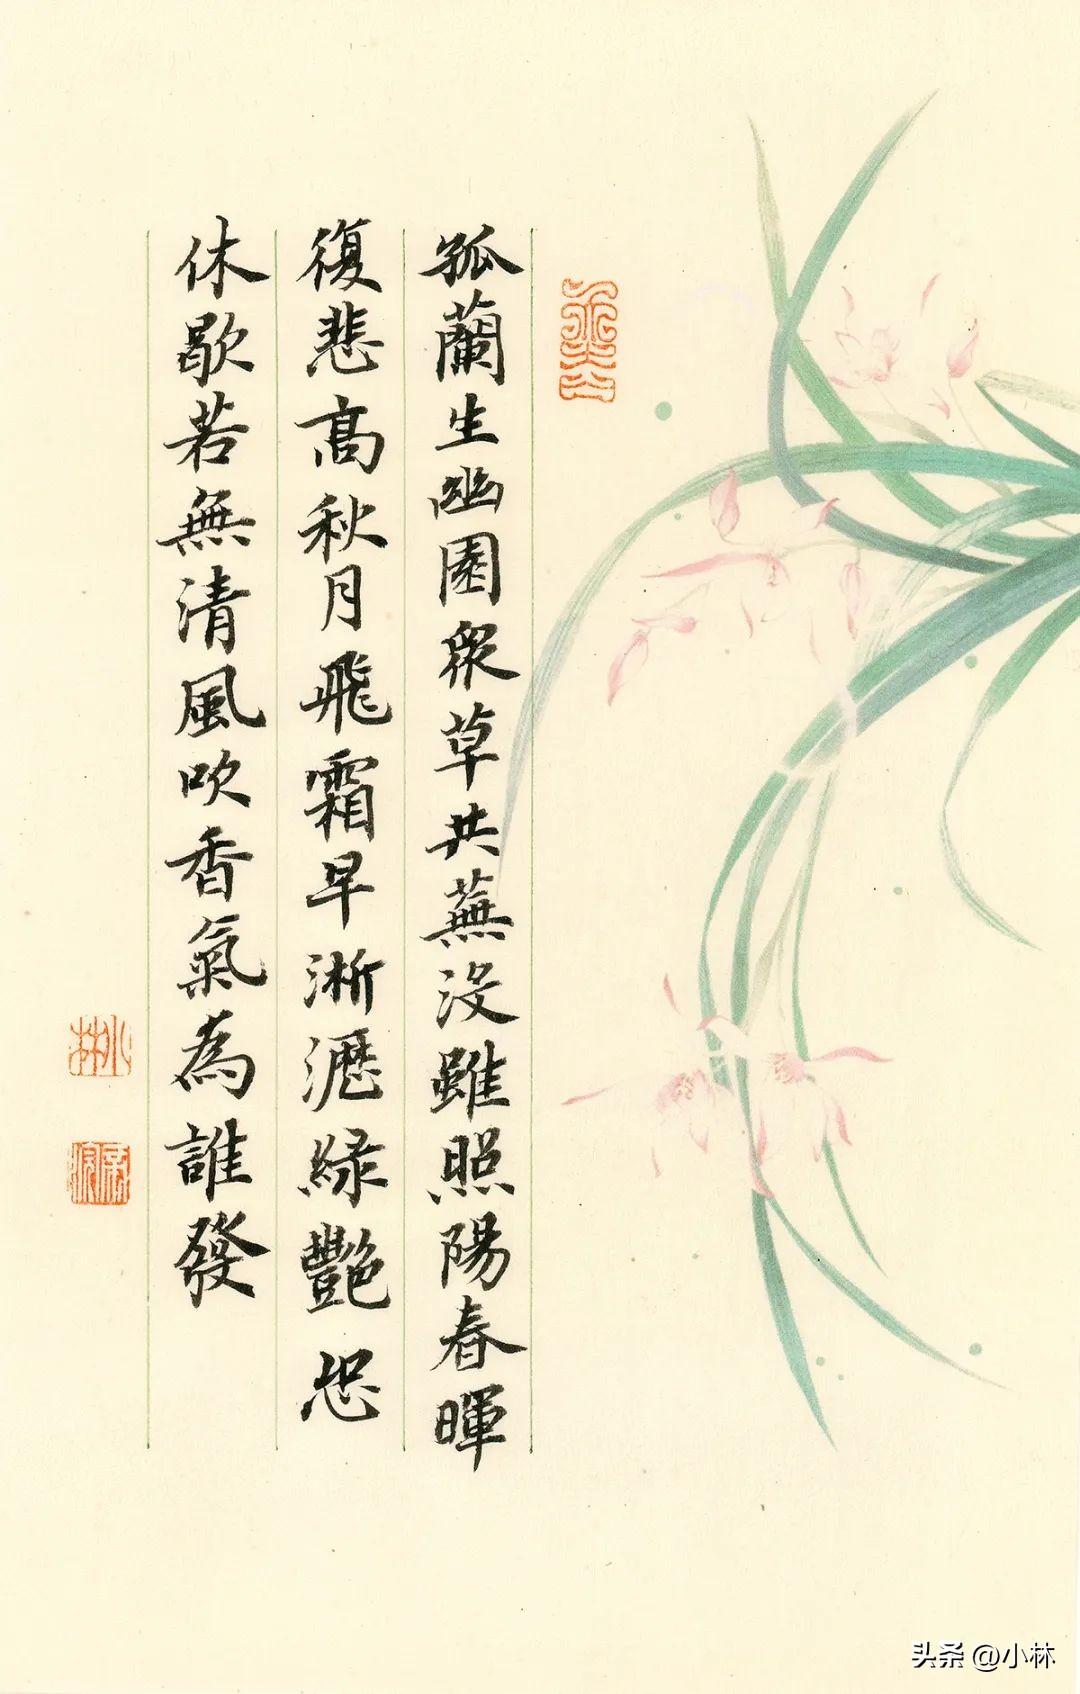 孤蘭生幽園眾草共蕪沒雖照陽春暉
復悲高秋月飛霜早淅瀝緑艷恐
休歇若無清風吹香氣為誰發
小林
头条 @小林